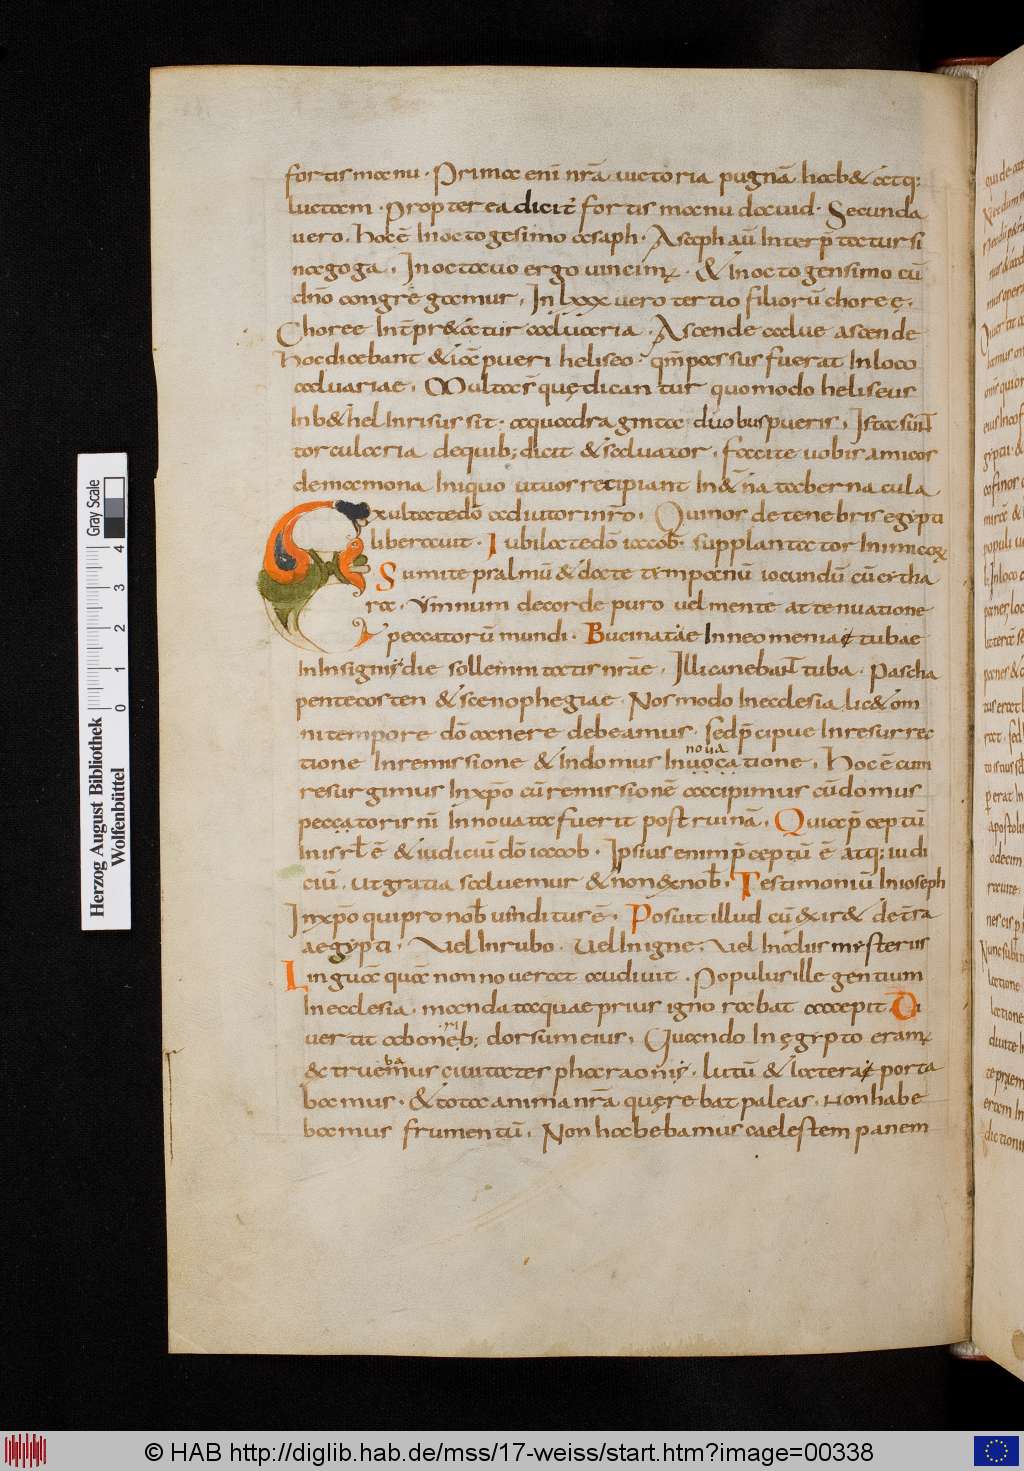 fortis manu · Primo enī nr̄a uictoria pugnā hab& atq;
luctam · Propterea dicit᷒ fortis manu dauid · Secunda
uero · hoc ē In octogesimo asaph · Asaph aū Interp̄tatur si
nagoga · In octauo ergo uincim᷒ · & In octogensimo cū
dn̄o congregamur · In lxxx uero tertio filiorū choreę ·
Choree Int̄pr&atur caluaria · Ascende calue ascende
hoc dicebant & iā pueri heliseo · qm̄ passus fuerat In loco
caluariae · Multa s̄ quę dicantur quomodo heliseus
In b&hel Inrisus sit · a quadraginta duobus pueris · Ista sunt
torcularia de quib; dicit & saluator · facite uobis amicos
de mamona Iniquo ut uos recipiant In &n̄a tabernacula
Exultate dō adiutori nr̄o · Qui nos de tenebris egypti
liberauit · Iubilate dō iacob · supplantator Inimicoꝝ
Sumite psalmū & date tẏmpanū iocundū cū citha
ra · Ymnum de corde puro uel mente attenuatione
peccatorū mundi · Bucinatae In neomeniae tubae
In Insigni die sollemnitatis nr̄ae · Illi canebant tuba · Pascha
pentecosten & scenophegiae · Nos modo In ecclesia lic& om
ni tempore dō canere debeamus · sed p̄cipue In resurrec
tione In remissione & In domus In uocatione · Hoc ē cum
noua
resurgimus In xp̄o cū remissionē accipimus cū domus
peccatoris n̄i Innouata fuerit post ruinā · Quia p̄ceptū
In isrl̄ ē & iudiciū dō iacob · Ipsius enim p̄ceptū ē atq; iudi
ciū · ut gratia saluemur & non ex nob̄ · Testimoniū In ioseph
In xp̄o qui pro nob̄ uinditus ē · Posuit illud cū exir& de t̄ra
aegypti · Vel In rubo · Vel In igne · Vel In aliis mysteriis
Linguā quā non nouerat audiuit · Populus ille gentium
In ecclesia · mandata quae prius ignorabat accepit · Di
uertit ab oneb; dorsum eius · Quando In ęgypto eram᷒
ri
& truemus ciuitates pharaonis · lutū & lateraę porta
ba
bamus · & tota anima nr̄a quęrebat paleas · Non habe
bamus frumentū · Non habebamus caelestem panem
Herzog August Bibliothek
Wolfenbüttel
Gray Scale
0 1 2 3 4
© HAB http://diglib.hab.de/mss/17-weiss/start.htm?image=00338